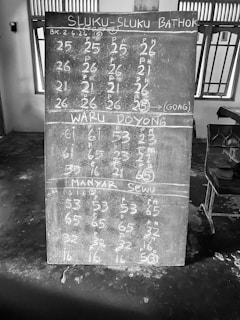 SLUKU-SLUKU BATHOK
BK 2 6 2 6
25 25 25 26
26 26 26 21
21 21 21 26
26 26 26 25 → (GONG)
WARU DOYONG
61 61 53
61 65 23
35 16 21 65
MANYAR SEWU
53 53 53 65
65 65 65 32
32 32 32 16
16 16 16 56